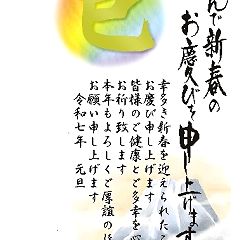 んで新春の
お慶びを申し上げます
巳
幸多き新春を迎えられたこ
お慶び申し上げます
皆様のご健康とご多幸を心
お祈り致します
本年もよろしくご厚誼のほ
お願い申し上げます
令和七年 元旦